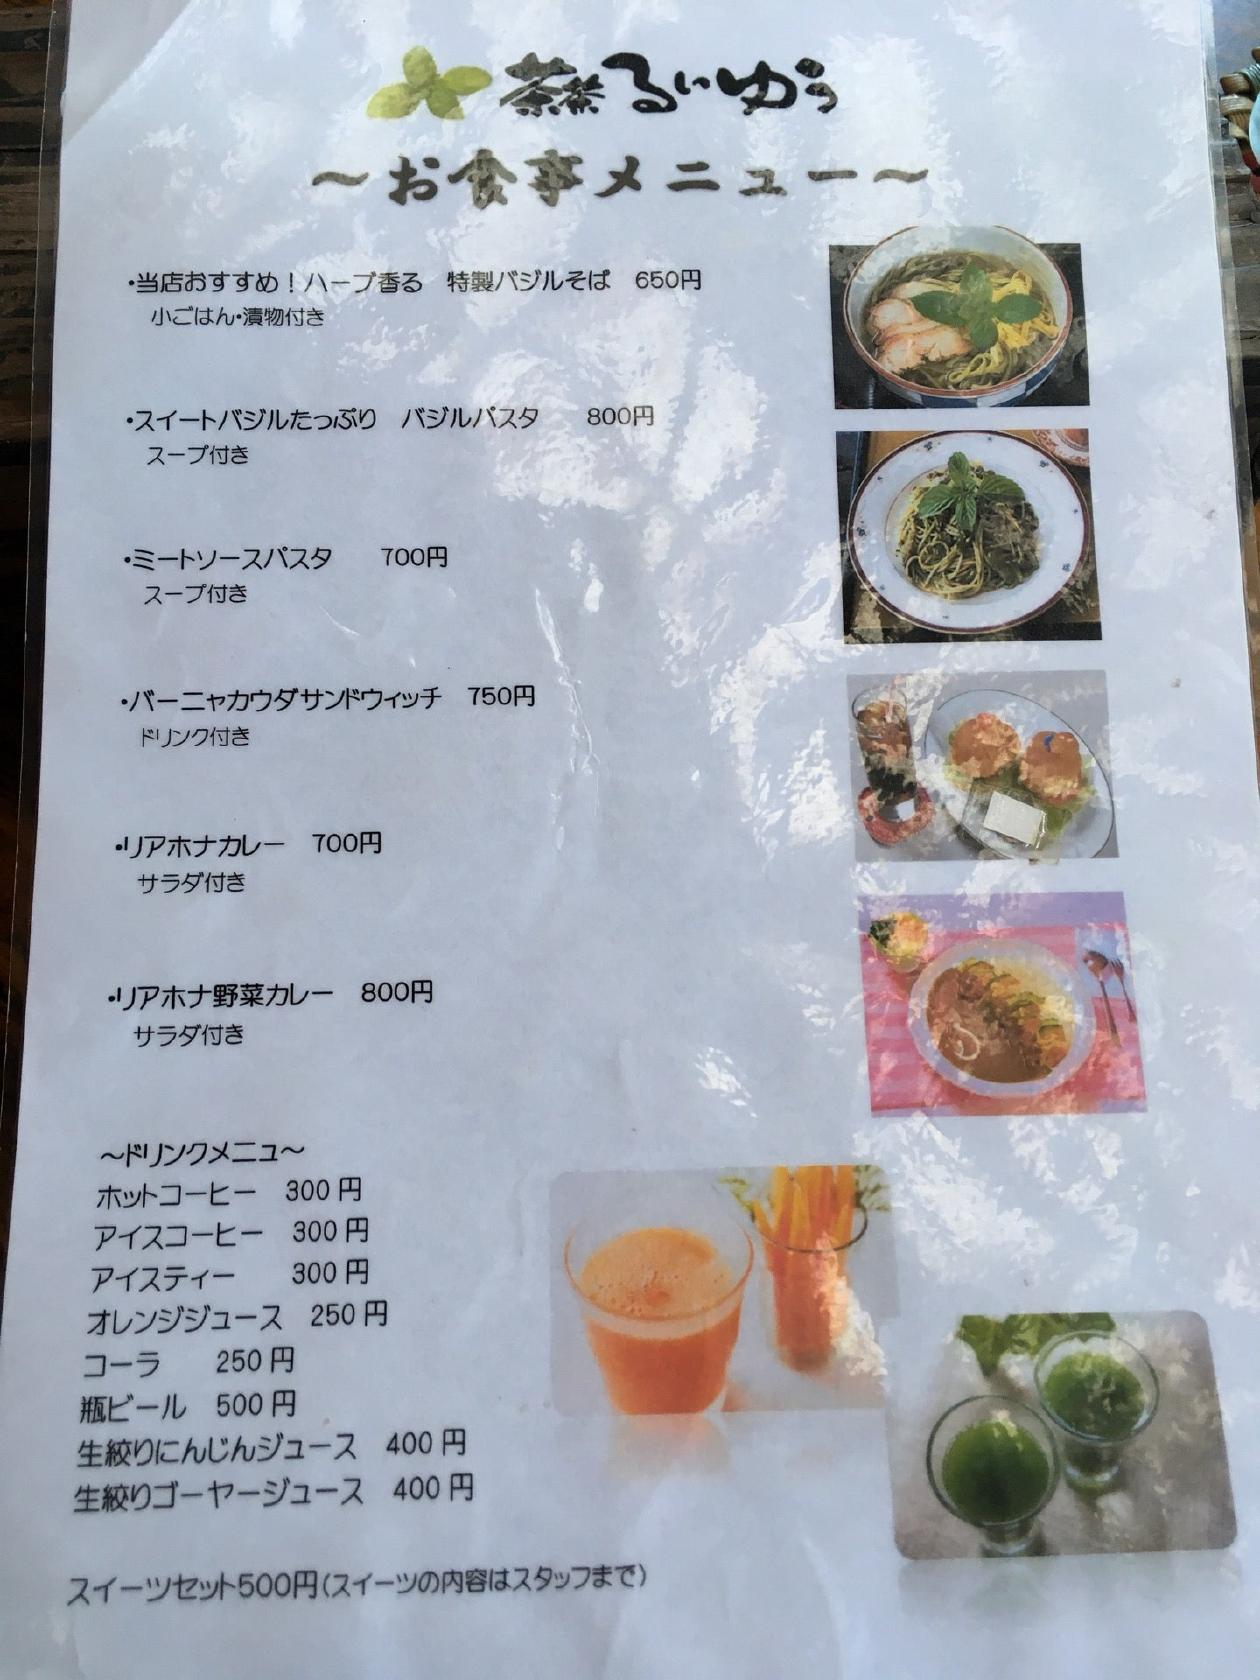 茶茶 るいゆう
～お食事メニュー～
・当店おすすめ！ハーブ香る　特製バジルそば　650円
小ごはん・漬物付き
・スイートバジルたっぷり　バジルパスタ　　800円
スープ付き
・ミートソースパスタ　　700円
スープ付き
・バーニャカウダサンドウィッチ　750円
ドリンク付き
・リアホナカレー　700円
サラダ付き
・リアホナ野菜カレー　800円
サラダ付き
～ドリンクメニュ～
ホットコーヒー　300円
アイスコーヒー　300円
アイスティー　　300円
オレンジジュース　250円
コーラ　　250円
瓶ビール　500円
生絞りにんじんジュース　400円
生絞りゴーヤージュース　400円
スイーツセット500円(スイーツの内容はスタッフまで)